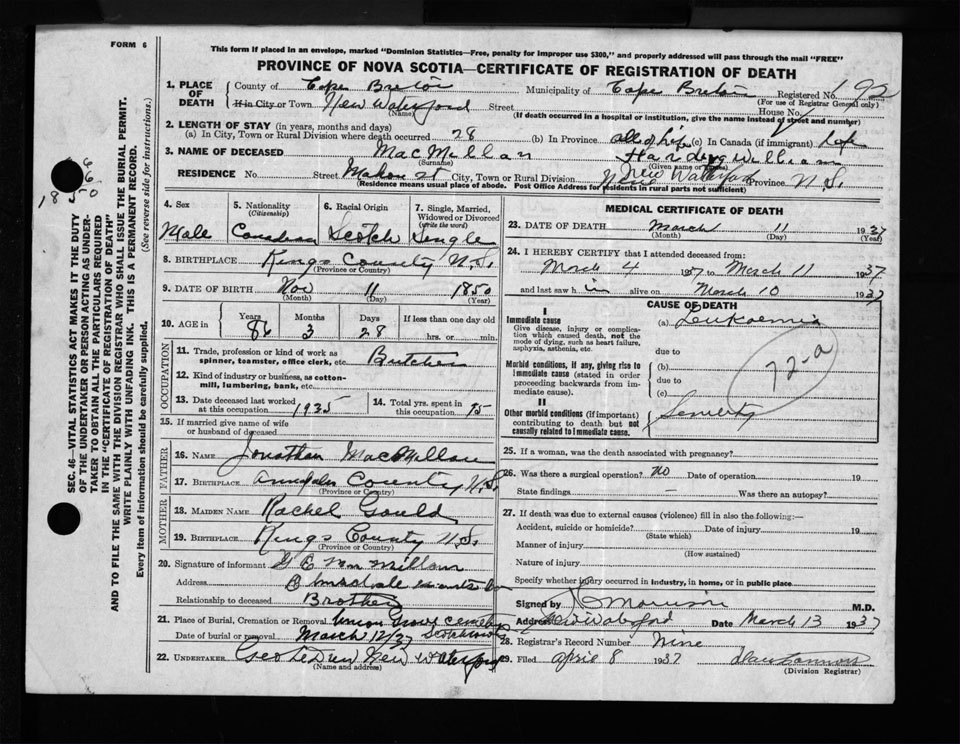 FORM 6
This form if placed in an envelope, marked "Dominion Statistics—Free, penalty for improper use $300," and properly addressed will pass through the mail "FREE"
PROVINCE OF NOVA SCOTIA—CERTIFICATE OF REGISTRATION OF DEATH
1. PLACE OF DEATH County of Cape Breton Municipality of Cape Breton Registered No. 192
(For use of Registrar General only)
If in City or Town New Waterford Street House No.
(Name) (If death occurred in a hospital or institution, give the name instead of street and number)
2. LENGTH OF STAY (in years, months and days)
(a) In City, Town or Rural Division where death occurred 28 (b) In Province all of life (c) In Canada (if immigrant) Life
3. NAME OF DECEASED MacMillan Harding William
(Surname) (Given name or names)
RESIDENCE No. Street Mahon St City, Town or Rural Division New Waterford Province N.S.
(Residence means usual place of abode. Post Office Address for residents in rural parts not sufficient)
4. Sex Male
5. Nationality (Citizenship) Canadian
6. Racial Origin Scotch
7. Single, Married, Widowed or Divorced (write the word) Single
8. BIRTHPLACE Kings County N.S.
(Province or Country)
9. DATE OF BIRTH Nov 11 1850
(Month) (Day) (Year)
10. AGE in Years 86 Months 3 Days 28 If less than one day old hrs. or min.
OCCUPATION
11. Trade, profession or kind of work as spinner, teamster, office clerk, etc. Butcher
12. Kind of industry or business, as cotton-mill, lumbering, bank, etc.
13. Date deceased last worked at this occupation 1935
14. Total yrs. spent in this occupation
15. If married give name of wife or husband of deceased
FATHER
16. NAME Jonathan MacMillan
17. BIRTHPLACE Annapolis County N.S.
(Province or Country)
MOTHER
18. MAIDEN NAME Rachel Gould
19. BIRTHPLACE Kings County N.S.
(Province or Country)
20. Signature of informant
Address
Relationship to deceased Brother
21. Place of Burial, Cremation or Removal Union Grove Cemetery
Date of burial or removal March 12/37
22. UNDERTAKER New Waterford
(Name and address)
MEDICAL CERTIFICATE OF DEATH
23. DATE OF DEATH March 11 1937
(Month) (Day) (Year)
24. I HEREBY CERTIFY that I attended deceased from:
March 4 1937 to March 11 1937
and last saw him alive on March 10 1937
CAUSE OF DEATH
I
Immediate cause (a) Leukaemia
Give disease, injury or complication which caused death, not the mode of dying, such as heart failure, asphyxia, asthenia, etc.
due to
72-a
Morbid conditions, if any, giving rise to immediate cause (stated in order proceeding backwards from immediate cause). (b)
due to
(c)
II
Other morbid conditions (if important) contributing to death but not causally related to immediate cause. Senility
25. If a woman, was the death associated with pregnancy?
26. Was there a surgical operation? No Date of operation 19
State findings — Was there an autopsy?
27. If death was due to external causes (violence) fill in also the following:—
Accident, suicide or homicide? Date of injury 19
(State which)
Manner of injury
(How sustained)
Nature of injury
Specify whether injury occurred in industry, in home, or in public place
Signed by Morrison M.D.
Address New Waterford Date March 13 1937
28. Registrar's Record Number Nine
29. Filed April 8 1937
(Division Registrar)
SEC. 46—VITAL STATISTICS ACT MAKES IT THE DUTY
OF THE UNDERTAKER OR PERSON ACTING AS UNDER-
TAKER TO OBTAIN ALL THE PARTICULARS REQUIRED
IN THE "CERTIFICATE OF REGISTRATION OF DEATH"
AND TO FILE THE SAME WITH THE DIVISION REGISTRAR WHO SHALL ISSUE THE BURIAL PERMIT.
WRITE PLAINLY WITH UNFADING INK. THIS IS A PERMANENT RECORD.
Every item of information should be carefully supplied. (See reverse side for instructions.)